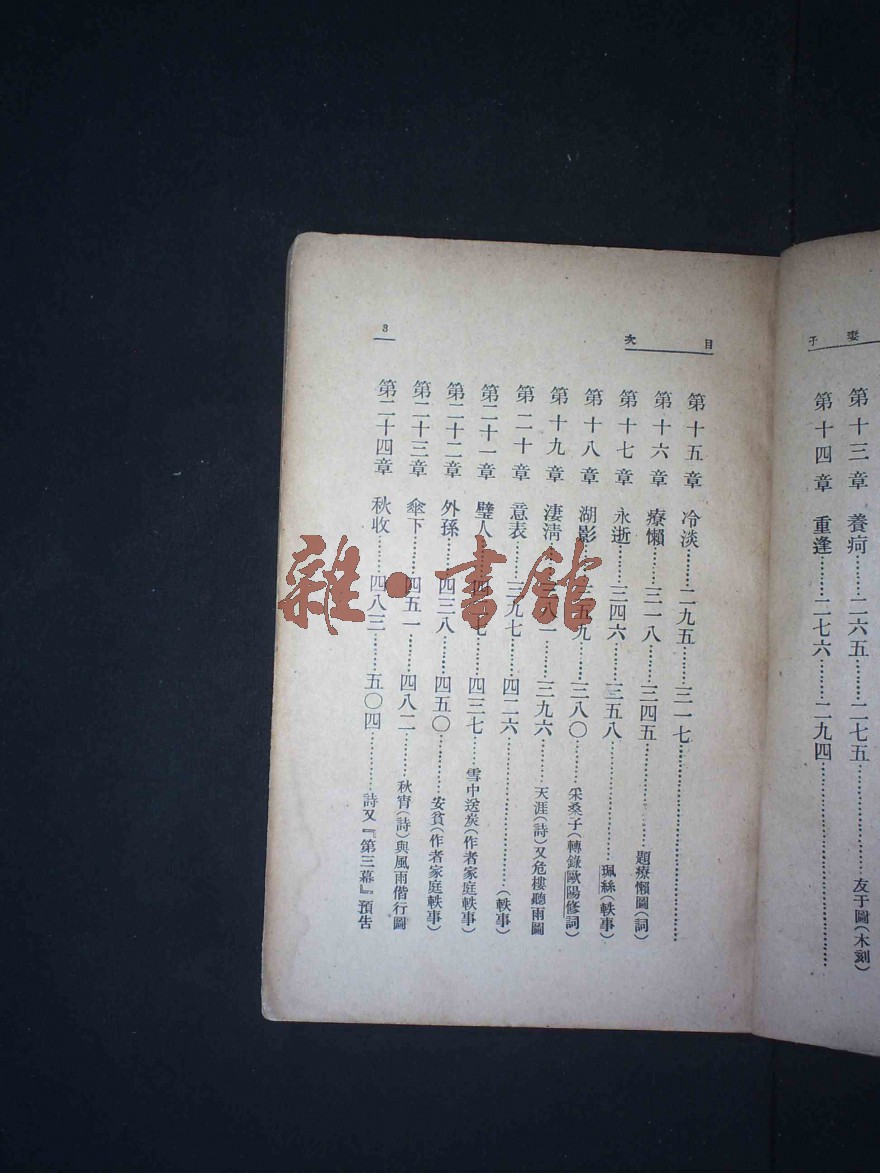 子妻
第十三章 養疴……二六五……二七五……友于圖(木刻)
第十四章 重逢……二七六……二九四……
目次
第十五章 冷淡……二九五……三一七……
第十六章 療懶……三一八……三四五……題療懶圖(詞)
第十七章 永逝……三四六……三五八……珮絲(軼事)
第十八章 湖影……三五九……三八〇……采桑子(轉錄歐陽修詞)
第十九章 淒清……三八一……三九六……天涯(詩)又危樓聽雨圖
第二十章 意表……三九七……四二六……(軼事)
第二十一章 璧人……四二七……四三七……雪中送炭(作者家庭軼事)
第二十二章 外孫……四三八……四五〇……安貧(作者家庭軼事)
第二十三章 傘下……四五一……四八二……秋宵(詩)與風雨偕行圖
第二十四章 秋收……四八三……五〇四……詩又『第三幕』預告
3
雜·書館